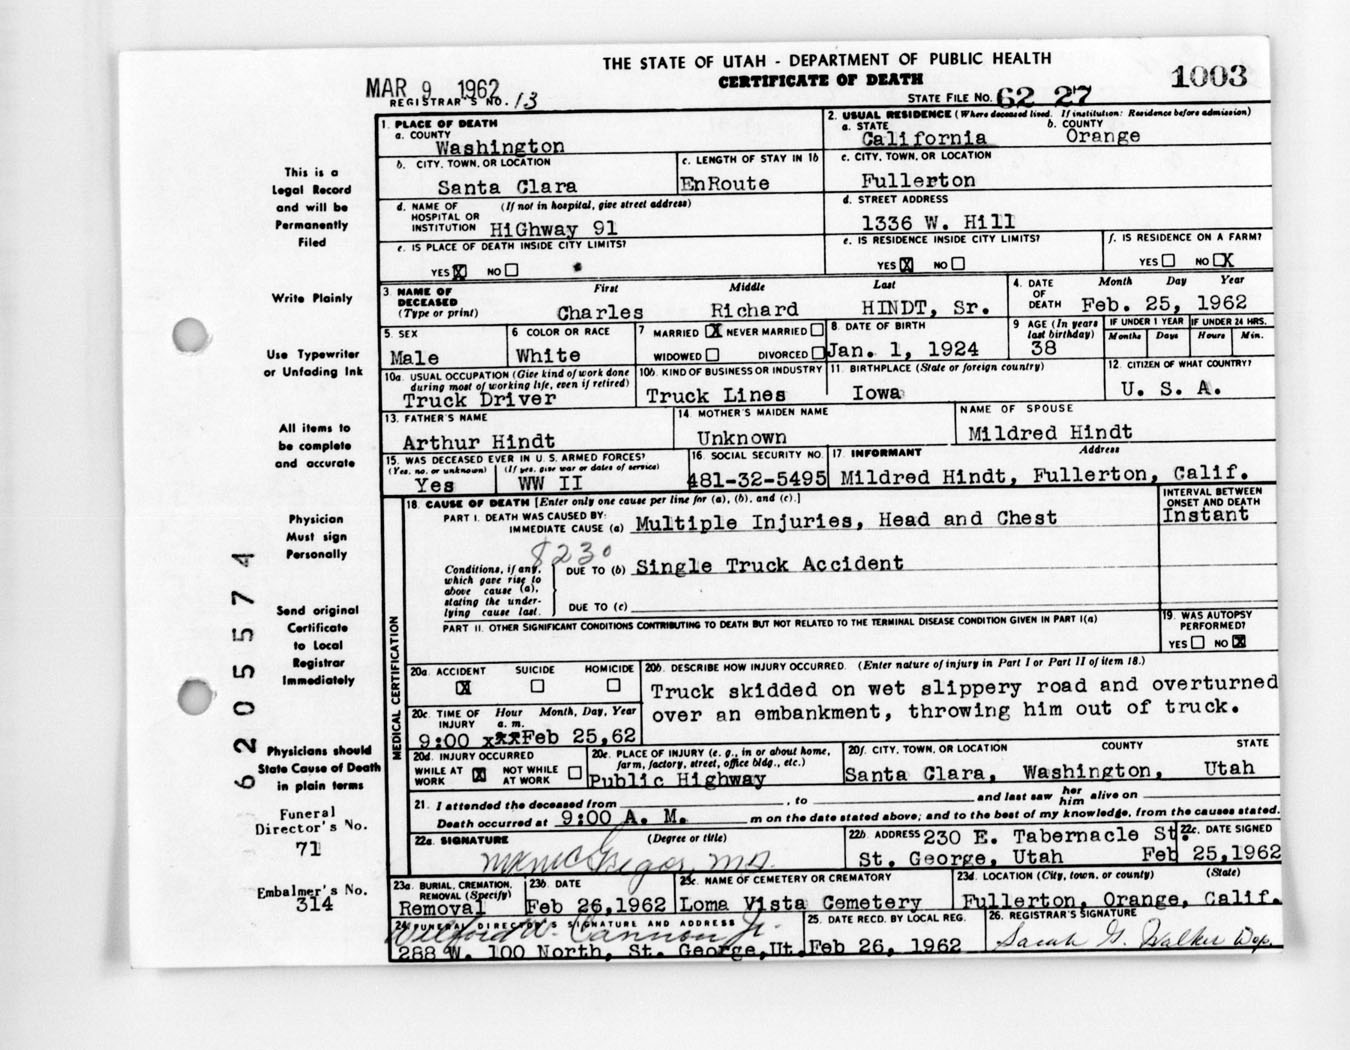 THE STATE OF UTAH - DEPARTMENT OF PUBLIC HEALTH
CERTIFICATE OF DEATH
1003
MAR 9 1962
REGISTRAR'S NO. 13
STATE FILE NO. 62 27
1. PLACE OF DEATH
a. COUNTY
Washington
2. USUAL RESIDENCE (Where deceased lived. If institution: Residence before admission)
a. STATE b. COUNTY
California Orange
b. CITY, TOWN, OR LOCATION
Santa Clara
c. LENGTH OF STAY IN 1b
EnRoute
c. CITY, TOWN, OR LOCATION
Fullerton
d. NAME OF (If not in hospital, give street address)
HOSPITAL OR
INSTITUTION HiGhway 91
d. STREET ADDRESS
1336 W. Hill
e. IS PLACE OF DEATH INSIDE CITY LIMITS?
YES X NO
e. IS RESIDENCE INSIDE CITY LIMITS?
YES X NO
f. IS RESIDENCE ON A FARM?
YES NO X
3. NAME OF First Middle Last
DECEASED
(Type or print) Charles Richard HINDT, Sr.
4. DATE Month Day Year
OF
DEATH Feb. 25, 1962
5. SEX
Male
6 COLOR OR RACE
White
7 MARRIED X NEVER MARRIED
WIDOWED DIVORCED
8. DATE OF BIRTH
Jan. 1, 1924
9 AGE (In years last birthday)
38
IF UNDER 1 YEAR IF UNDER 24 HRS.
Months Days Hours Min.
10a. USUAL OCCUPATION (Give kind of work done
during most of working life, even if retired)
Truck Driver
10b. KIND OF BUSINESS OR INDUSTRY
Truck Lines
11. BIRTHPLACE (State or foreign country)
Iowa
12. CITIZEN OF WHAT COUNTRY?
U. S. A.
13. FATHER'S NAME
Arthur Hindt
14. MOTHER'S MAIDEN NAME
Unknown
NAME OF SPOUSE
Mildred Hindt
15. WAS DECEASED EVER IN U. S. ARMED FORCES?
(Yes, no, or unknown) (If yes, give war or dates of service)
Yes WW II
16. SOCIAL SECURITY NO.
481-32-5495
17. INFORMANT Address
Mildred Hindt, Fullerton, Calif.
18. CAUSE OF DEATH [Enter only one cause per line for (a), (b), and (c).]
INTERVAL BETWEEN
ONSET AND DEATH
PART I. DEATH WAS CAUSED BY:
IMMEDIATE CAUSE (a) Multiple Injuries, Head and Chest
Instant
8230
Conditions, if any,
which gave rise to
above cause (a),
stating the under-
lying cause last.
DUE TO (b) Single Truck Accident
DUE TO (c)
PART II. OTHER SIGNIFICANT CONDITIONS CONTRIBUTING TO DEATH BUT NOT RELATED TO THE TERMINAL DISEASE CONDITION GIVEN IN PART I(a)
19. WAS AUTOPSY
PERFORMED?
YES NO X
MEDICAL CERTIFICATION
20a. ACCIDENT SUICIDE HOMICIDE
X
20b. DESCRIBE HOW INJURY OCCURRED. (Enter nature of injury in Part I or Part II of item 18.)
Truck skidded on wet slippery road and overturned
over an embankment, throwing him out of truck.
20c. TIME OF Hour Month, Day, Year
INJURY a. m.
9:00 xxx Feb 25,62
20d. INJURY OCCURRED
WHILE AT X NOT WHILE
WORK AT WORK
20e. PLACE OF INJURY (e. g., in or about home,
farm, factory, street, office bldg., etc.)
Public Highway
20f. CITY, TOWN, OR LOCATION COUNTY STATE
Santa Clara, Washington, Utah
21. I attended the deceased from , to and last saw her him alive on
Death occurred at 9:00 A. M. m on the date stated above; and to the best of my knowledge, from the causes stated.
22a. SIGNATURE (Degree or title)
McGregor, M.D.
22b. ADDRESS 230 E. Tabernacle St.
St. George, Utah
22c. DATE SIGNED
Feb 25,1962
23a. BURIAL, CREMATION,
REMOVAL (Specify)
Removal
23b. DATE
Feb 26,1962
23c. NAME OF CEMETERY OR CREMATORY
Loma Vista Cemetery
23d. LOCATION (City, town, or county) (State)
Fullerton, Orange, Calif.
24. FUNERAL DIRECTOR'S SIGNATURE AND ADDRESS
Cannon Jr.
288 W. 100 North, St. George,Ut.
25. DATE RECD. BY LOCAL REG.
Feb 26, 1962
26. REGISTRAR'S SIGNATURE
Sarah G. Walker Dep.
This is a
Legal Record
and will be
Permanently
Filed
Write Plainly
Use Typewriter
or Unfading Ink
All items to
be complete
and accurate
Physician
Must sign
Personally
Send original
Certificate
to Local
Registrar
Immediately
Physicians should
State Cause of Death
in plain terms
Funeral
Director's No.
71
Embalmer's No.
314
6205574